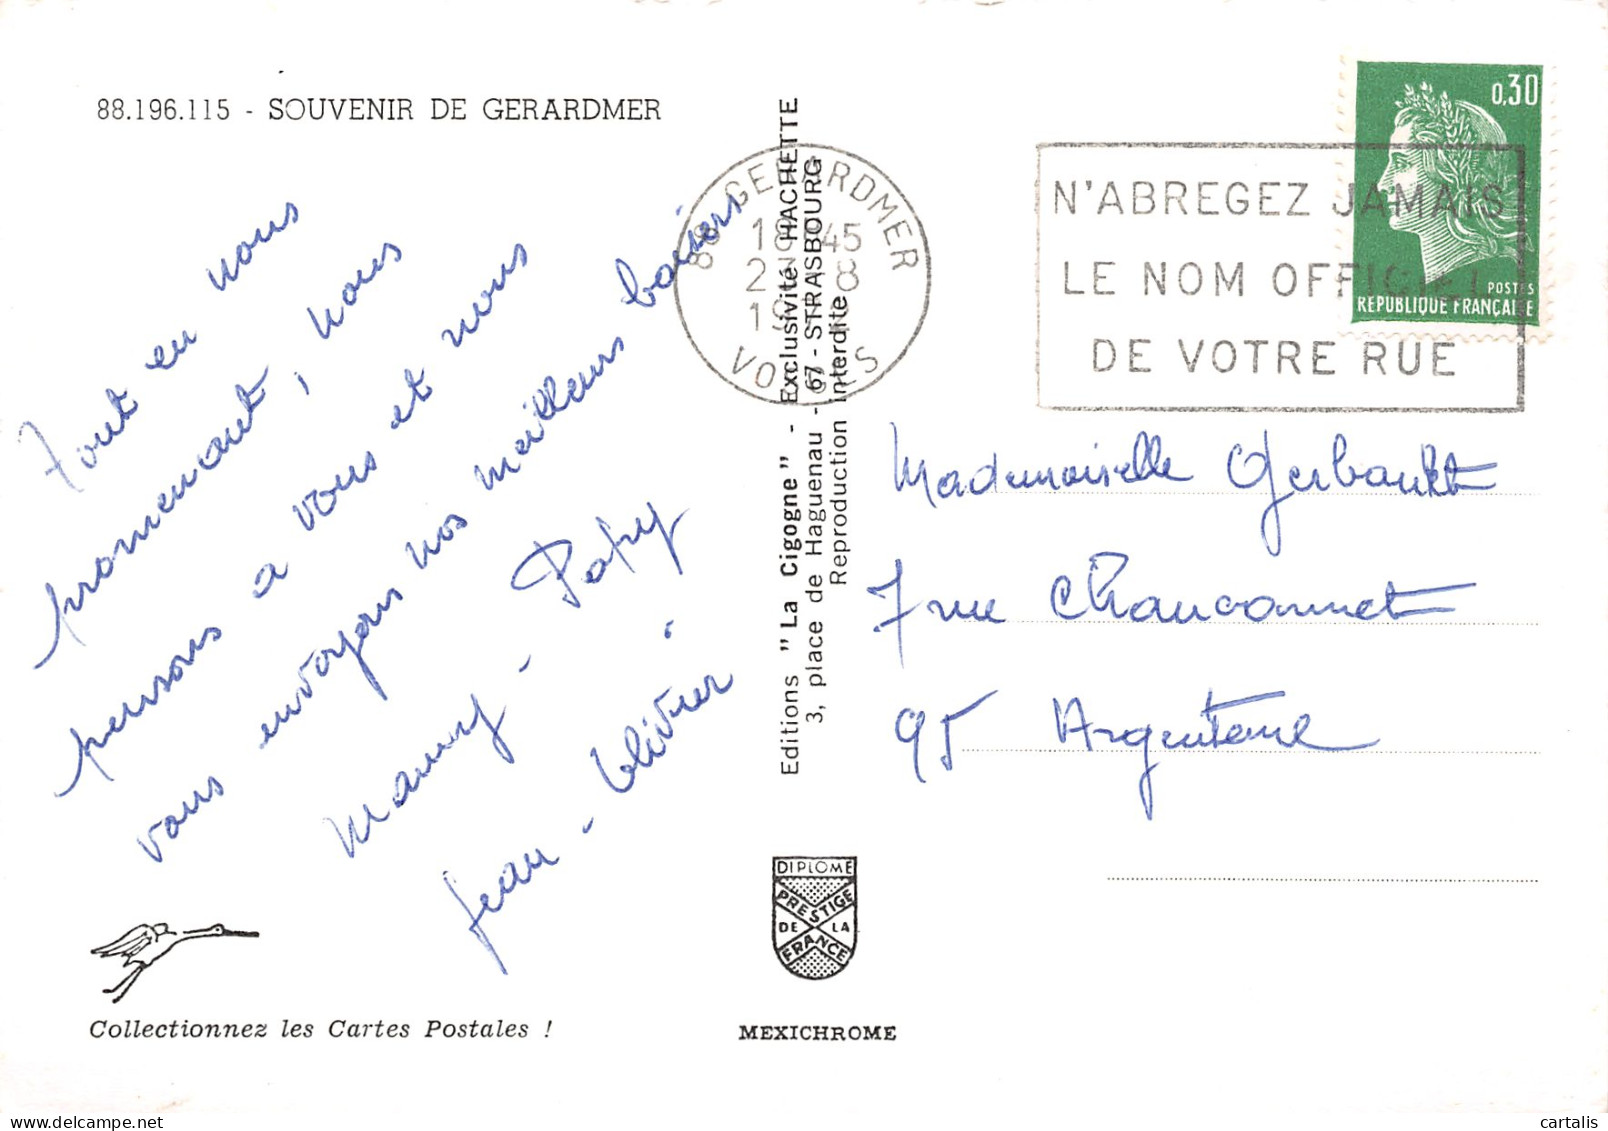 88.196.115 - SOUVENIR DE GERARDMER
Tout en nous
promenant, nous
pensons a vous et nous
vous envoyons nos meilleurs baisers
Mamy - Papy -
Jean - Olivier
Editions "La Cigogne" - Exclusivité HACHETTE
3, place de Haguenau - 67 - STRASBOURG
Reproduction Interdite
88 GERARDMER
18 45
2 8
19
VOSGES
N'ABREGEZ JAMAIS
LE NOM OFFICIEL
DE VOTRE RUE
0,30
POSTES
REPUBLIQUE FRANÇAISE
Mademoiselle Gerbault
7 rue
95 Argenteuil
DIPLOME
PRESTIGE
DE LA
FRANCE
MEXICHROME
Collectionnez les Cartes Postales !
cartalis